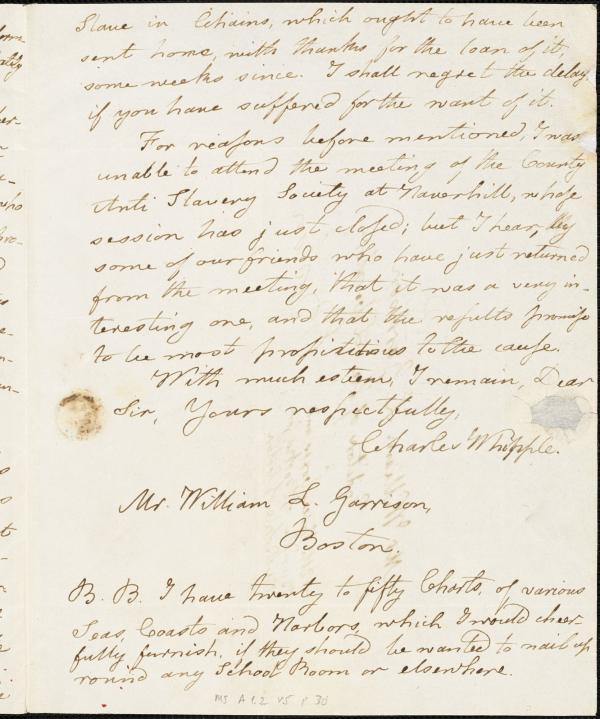 Slave in Chains, which ought to have been
sent home, with thanks for the loan of it,
some weeks since. I shall regret the delay
if you have suffered for the want of it.
For reasons before mentioned, I was
unable to attend the meeting of the County
Anti Slavery Society at Haverhill, whose
session has just closed; but I hear, by
some of our friends who have just returned
from the meeting, that it was a very in-
teresting one, and that the results promise
to be most propisitious to the cause.
With much esteem, I remain, Dear
Sir, Yours respectfully,
Charles Whipple.
Mr. William L. Garrison,
Boston.
B. B. I have twenty to fifty Charts, of various
Seas, Coasts and Harbors, which I would cheer-
fully furnish, if they should be wanted to nail up
round any School Room or elsewhere.
MS A 1.2 V5 P 30